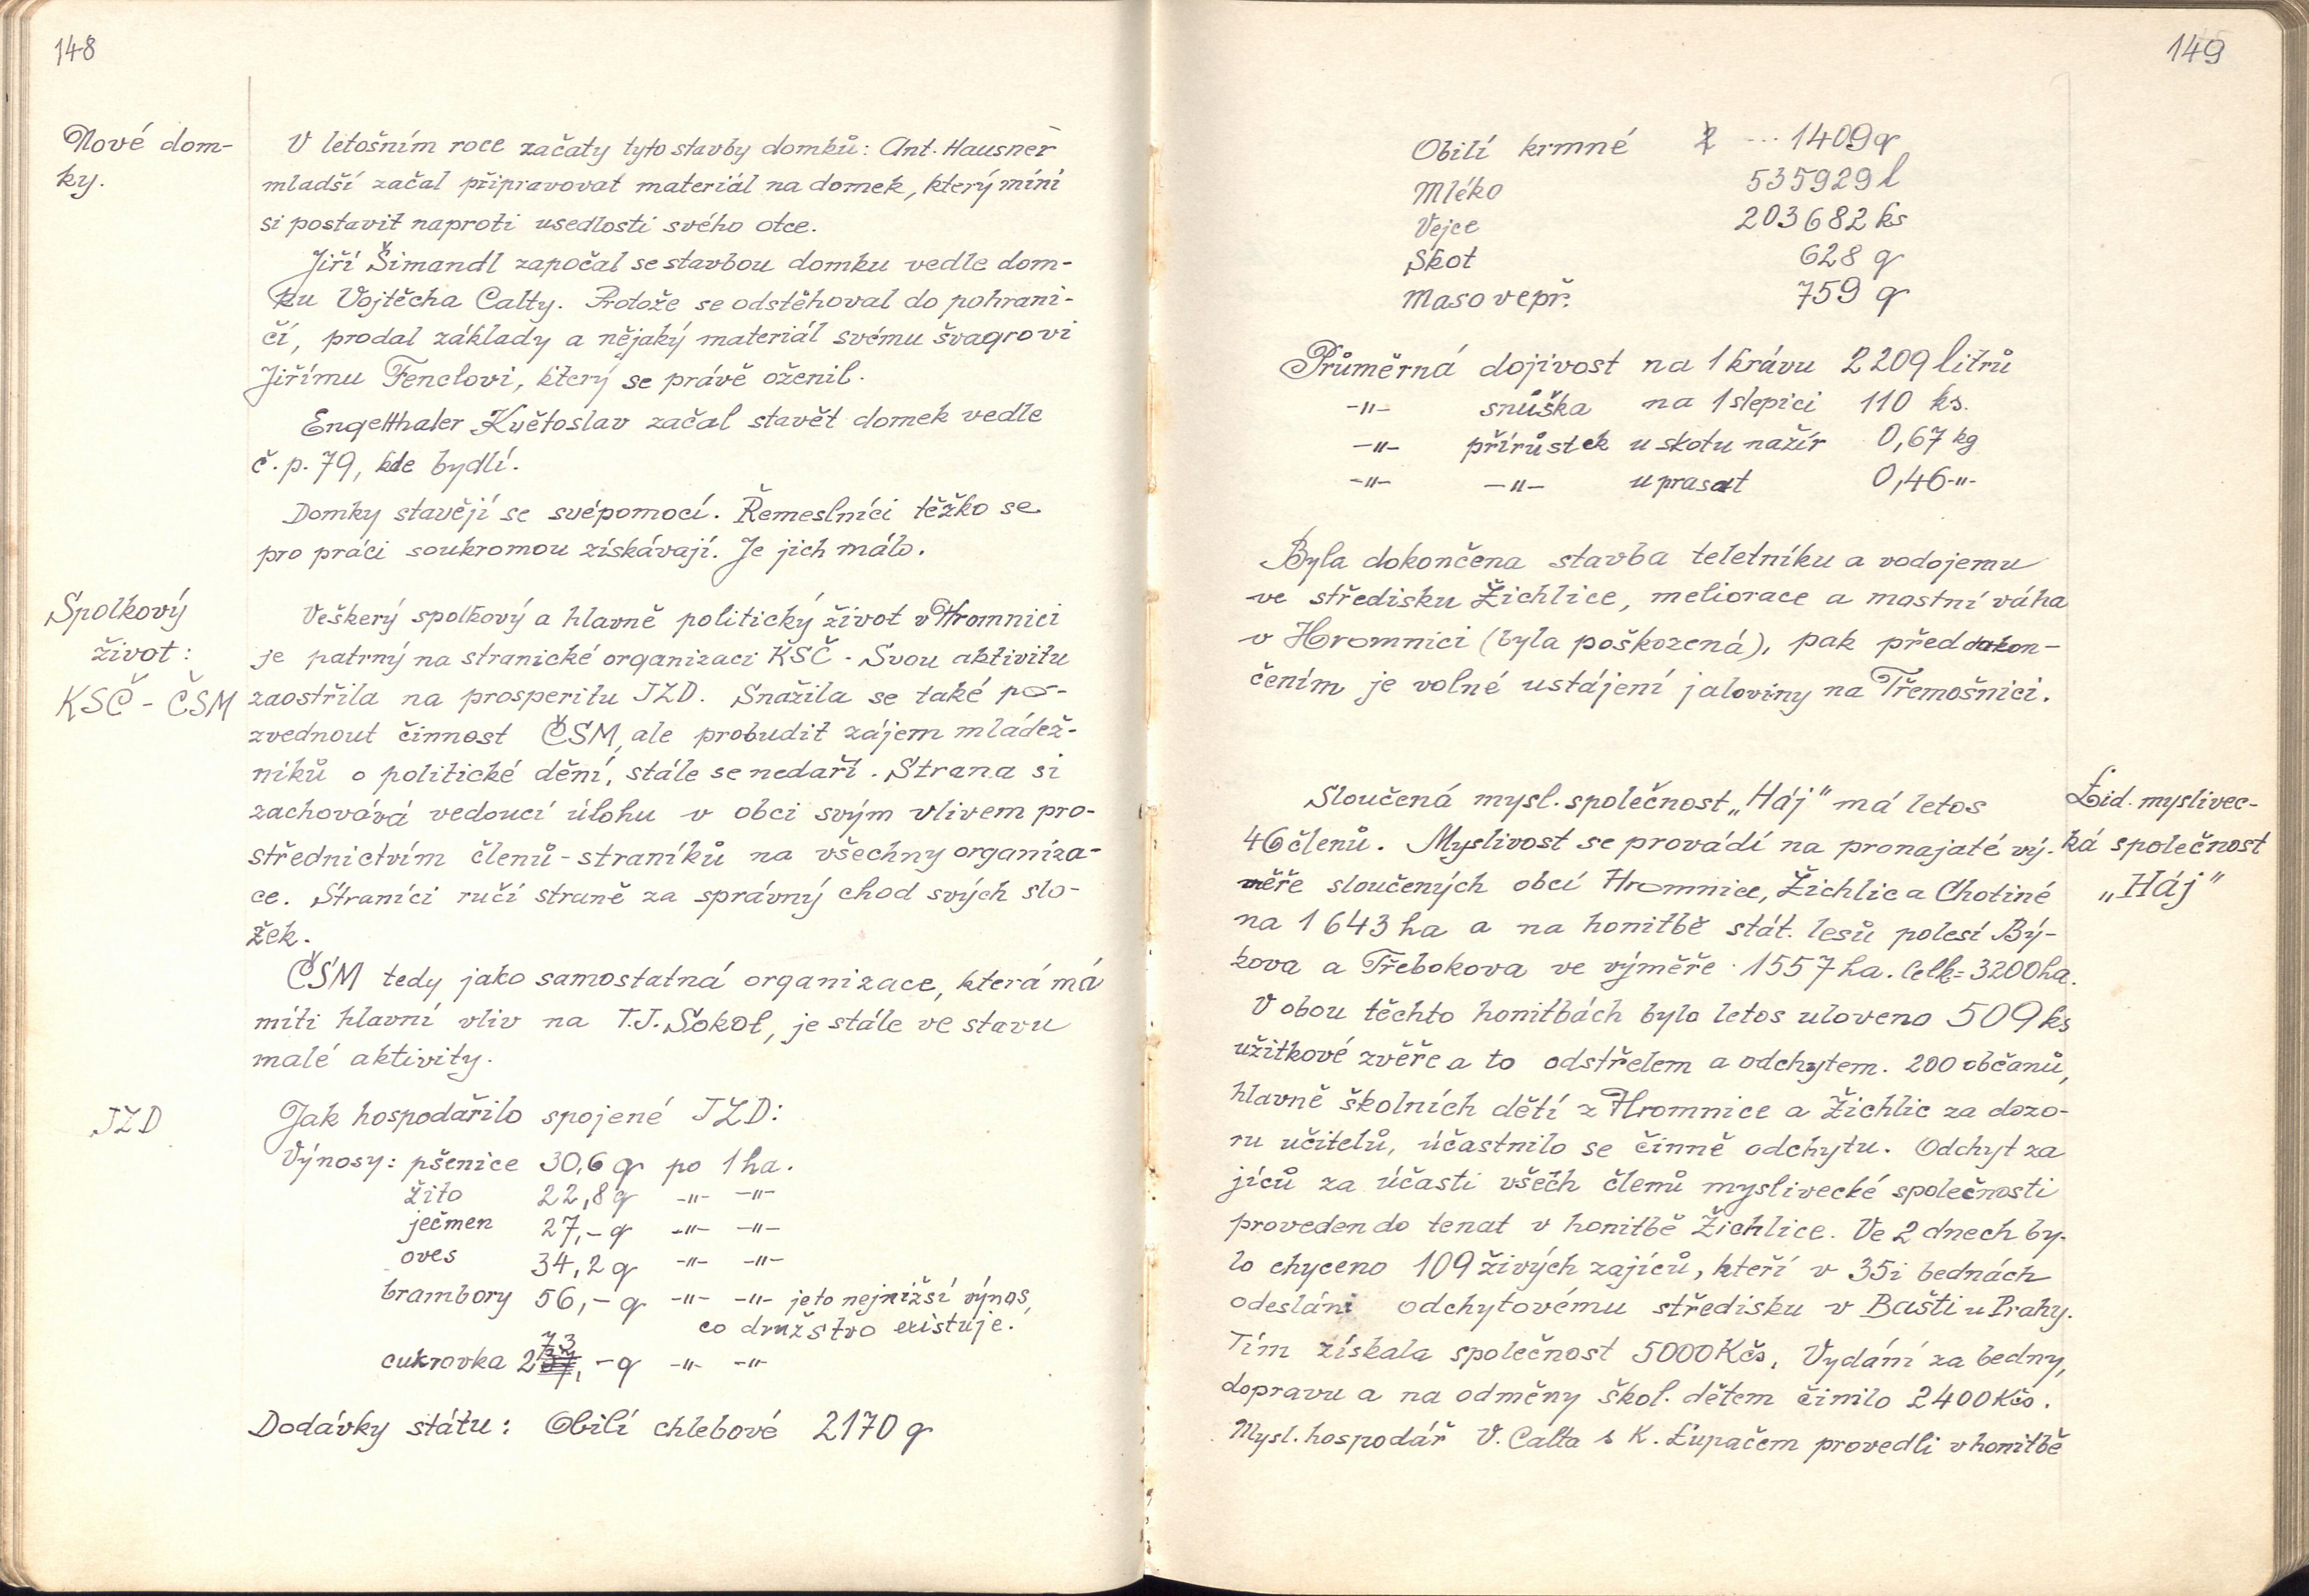 148
Nové dom-
ky.
V letošním roce začaty tyto stavby domků: Ant. Hausner
mladší začal připravovat materiál na domek, který míní
si postavit naproti usedlosti svého otce.
Jiří Šimandl započal se stavbou domku vedle dom-
ku Vojtěcha Calty. Protože se odstěhoval do pohrani-
čí, prodal základy a nějaký materiál svému švagrovi
Jiřímu Fenclovi, který se právě oženil.
Engelthaler Květoslav začal stavět domek vedle
č.p. 79, kde bydlí.
Domky stavějí se svépomocí. Řemeslníci těžko se
pro práci soukromou získávají. Je jich málo.
Spolkový
život:
KSČ - ČSM
Veškerý spolkový a hlavně politický život v Hromnici
je patrný na stranické organizaci KSČ. Svou aktivitu
zaostřila na prosperitu JZD. Snažila se také po-
zvednout činnost ČSM, ale probudit zájem mládež-
níků o politické dění, stále se nedaří. Strana si
zachovává vedoucí úlohu v obci svým vlivem pro-
střednictvím členů-straníků na všechny organiza-
ce. Straníci ručí straně za správný chod svých slo-
žek.
ČSM tedy jako samostatná organizace, která má
míti hlavní vliv na T.J. Sokol, je stále ve stavu
malé aktivity.
JZD
Jak hospodařilo spojené JZD:
Výnosy: pšenice 30,6 q po 1 ha.
žito 22,8 q -"- -"-
ječmen 27,- q -"- -"-
oves 34,2 q -"- -"-
brambory 56,- q -"- -"- je to nejnižší výnos,
co družstvo existuje.
cukrovka 273,- q -"- -"-
Dodávky státu: Obilí chlebové 2170 q
149
Obilí krmné ... 1409 q
Mléko 535929 l
Vejce 203682 ks
Skot 628 q
Maso vepř. 759 q
Průměrná dojivost na 1 krávu 2209 litrů
-"- snůška na 1 slepici 110 ks.
-"- přírůstek u skotu nažír 0,67 kg
-"- -"- u prasat 0,46 -"-
Byla dokončena stavba teletníku a vodojemu
ve středisku Žichlice, meliorace a mostní váha
v Hromnici (byla poškozená), pak před dokon-
čením je volné ustájení jaloviny na Třemošnici.
Sloučená mysl. společnost „Háj" má letos
46 členů. Myslivost se provádí na pronajaté vý-
měře sloučených obcí Hromnice, Žichlic a Chotiné
na 1643 ha a na honitbě stát. lesů polesí Bý-
kova a Třebokova ve výměře 1557 ha. Celk= 3200 ha.
Lid. myslivec-
ká společnost
„Háj"
V obou těchto honitbách bylo letos uloveno 509 ks
užitkové zvěře a to odstřelem a odchytem. 200 občanů,
hlavně školních dětí z Hromnice a Žichlic za dozo-
ru učitelů, účastnilo se činně odchytu. Odchyt za
jíců za účasti všech členů myslivecké společnosti
proveden do tenat v honitbě Žichlice. Ve 2 dnech by-
lo chyceno 109 živých zajíců, kteří v 35i bednách
odesláni odchytovému středisku v Bašti u Prahy.
Tím získala společnost 5000 Kčs. Vydání za bedny,
dopravu a na odměny škol. dětem činilo 2400 Kčs.
Mysl. hospodář V. Calta s K. Lupačem provedli v honitbě